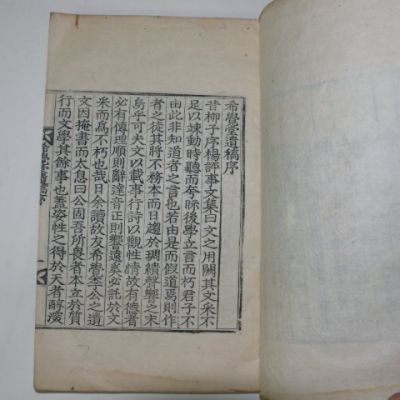 希覺堂遺稿序
昔柳子序楊評事文集曰文之用闕其文采不
足以竦動時聽而夸眎後學立言而朽君子不
由此非知道者之言也若由是而假道焉則作
者之從其將不務本而日趨於琱繢聲響之末
烏乎可夫文以載事行詩以觀性情故有德者
必有傳理順則辭達音正則響遠奚必託於文
采而爲不朽也哉日余讀故友希覺李公之遺
文因掩書而太息曰公固吾所畏者本立於質
行而文學其餘事也蓋姿性之得於天者醇淡